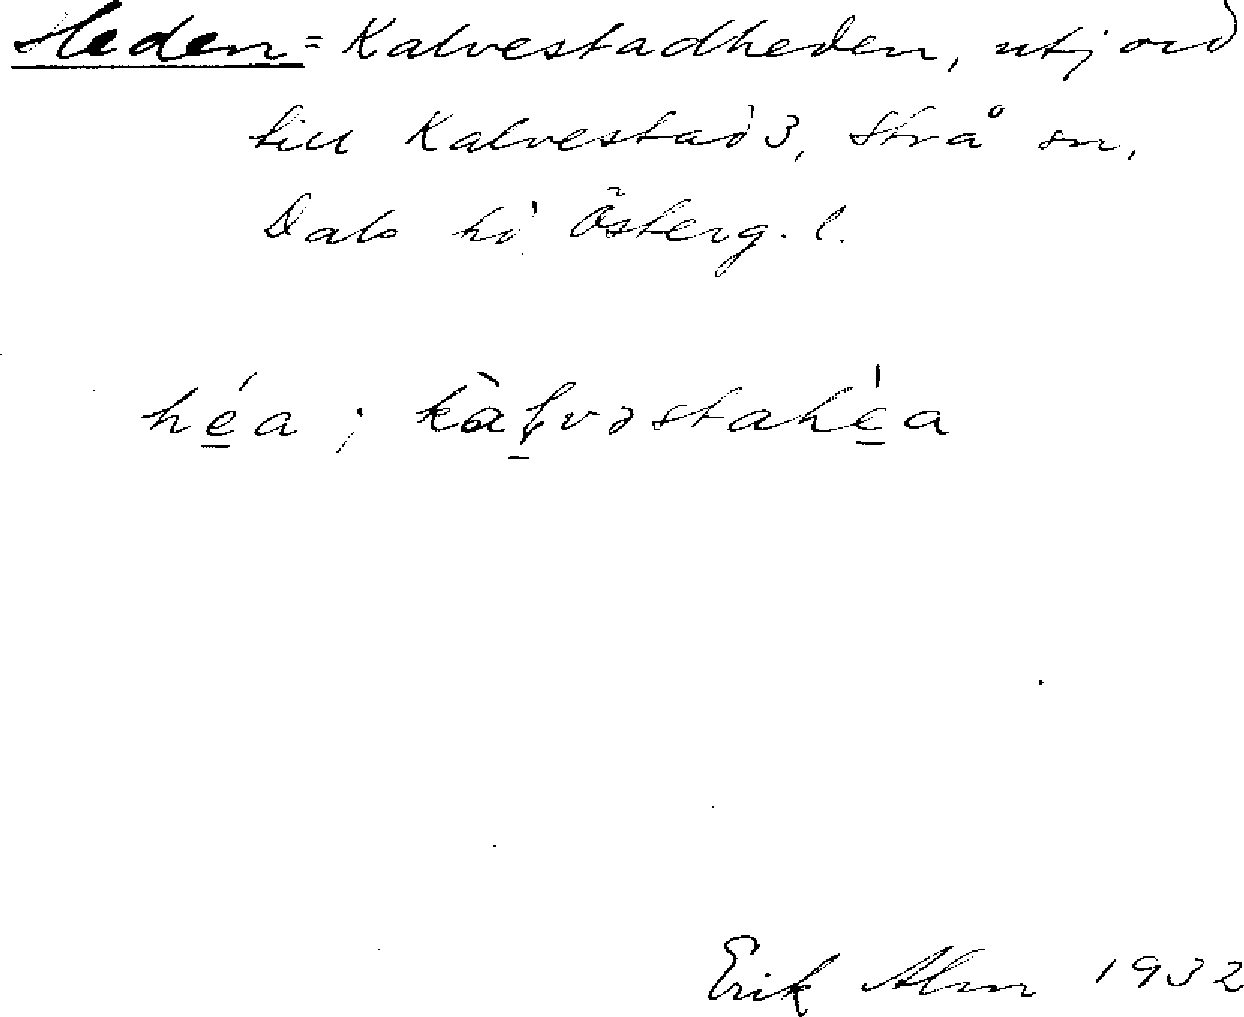 Heden = Kalvestadheden, utjord
till Kalvestad 3, Strå sn,
Dals hd Österg. l.
hé̲a ; kàḻvəstahé̲a
Erik Alm 1932